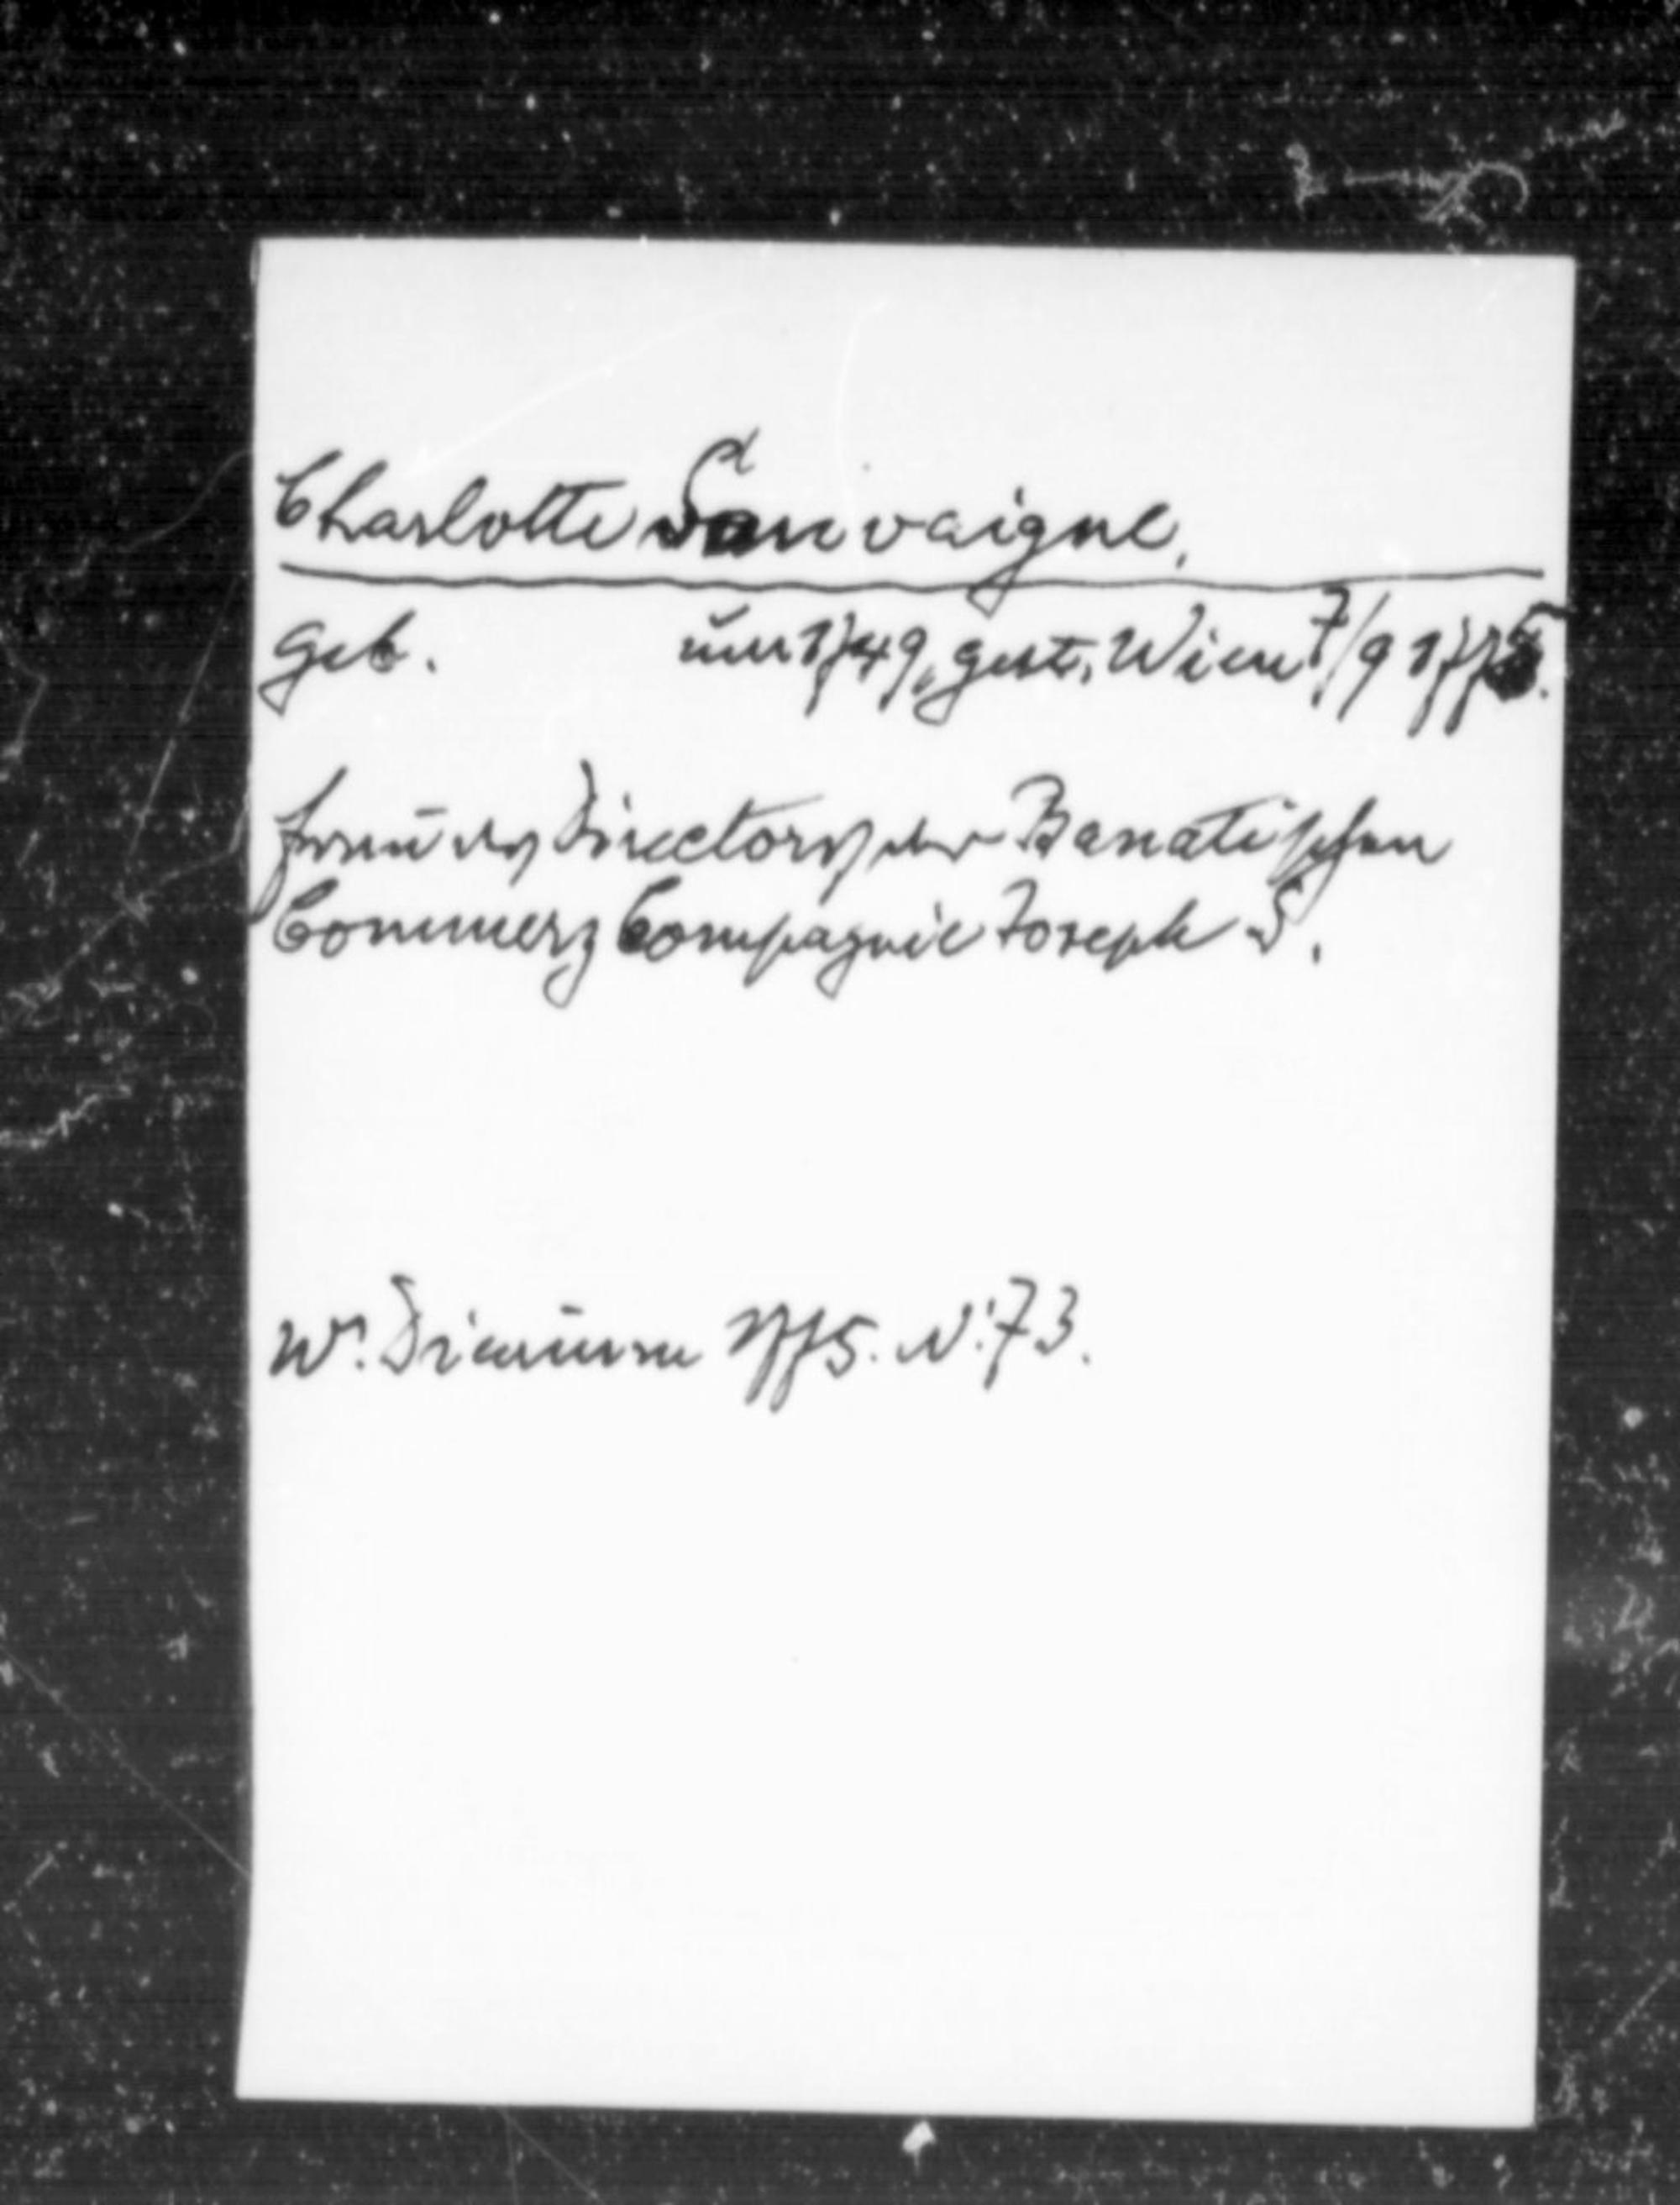 Charlotte Sauvaigne.
geb. um 1749, gest. Wien 7/9 1775.
Frau des Directors der Banatischen
Commerz Compagnie Joseph S.
Wr. Diarium 1775. N: 73.